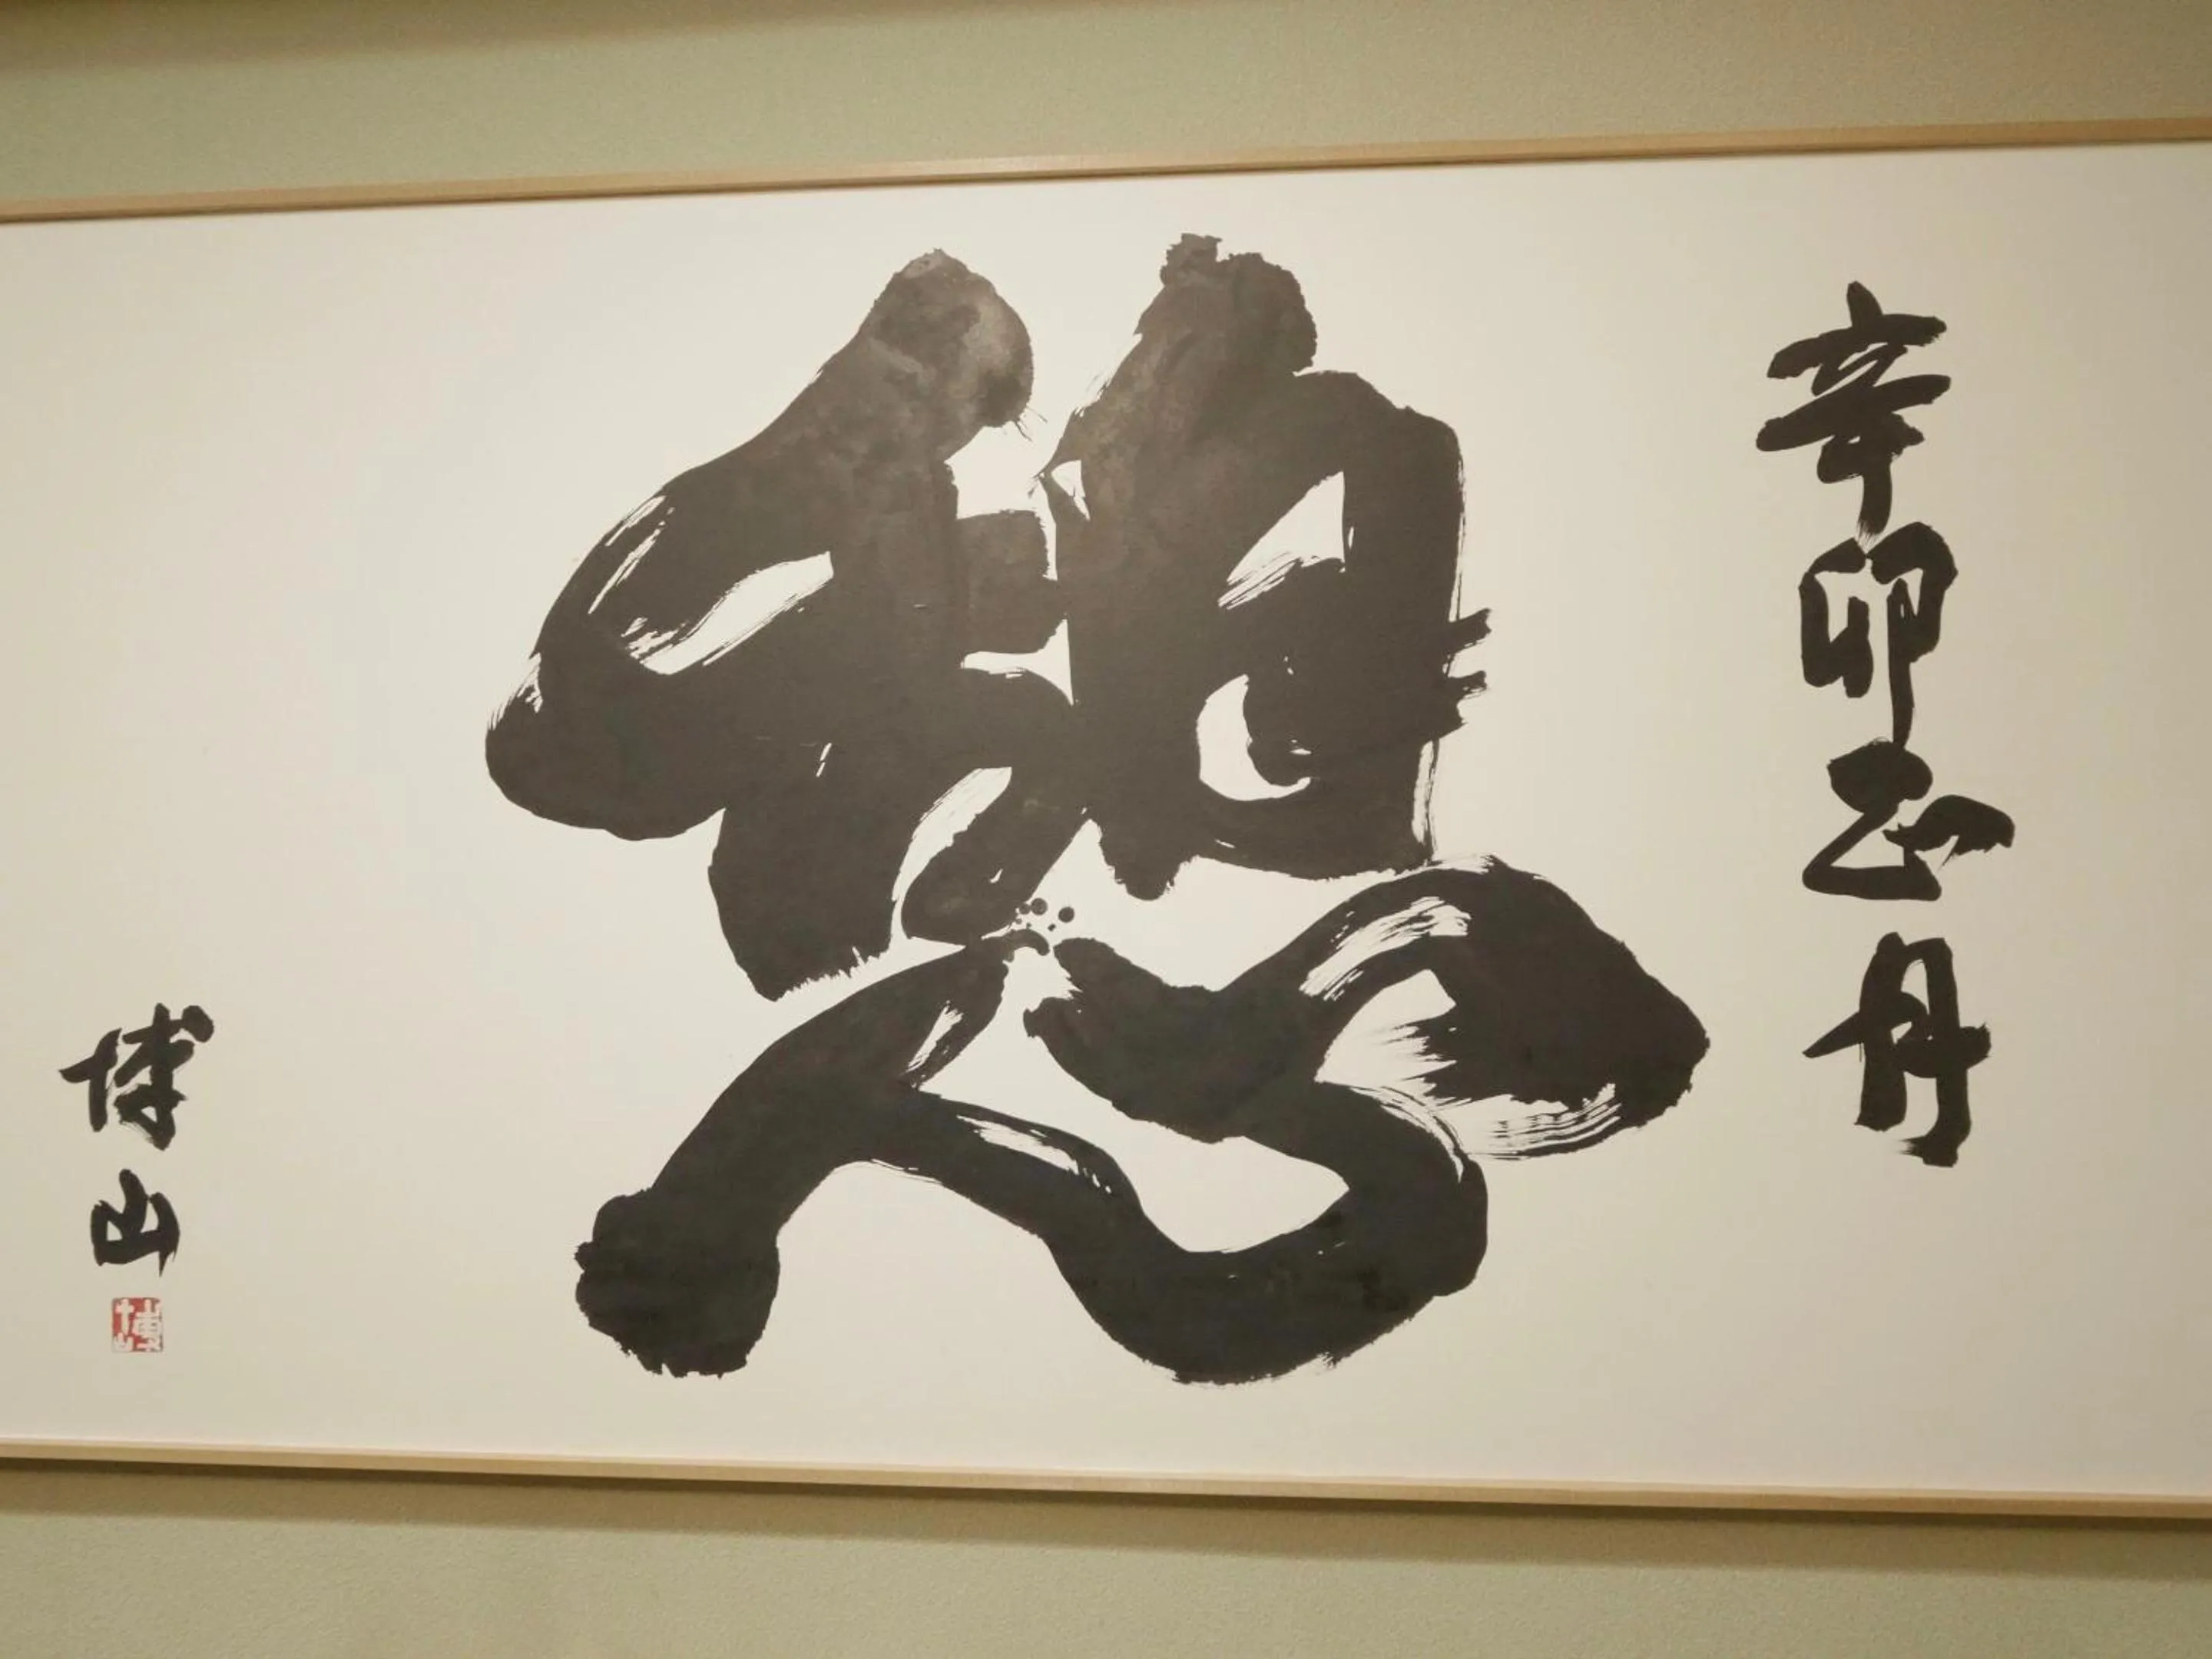 辛卯正月
博山
博山